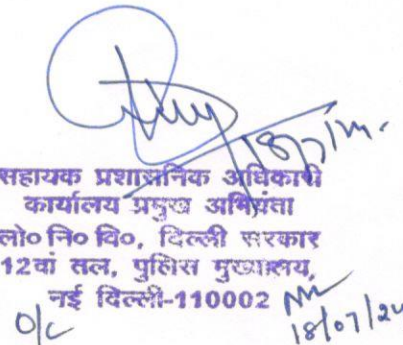 18/7/24
सहायक प्रशासनिक अधिकारी
कार्यालय प्रमुख अभियंता
लो० नि० वि०, दिल्ली सरकार
12वां तल, पुलिस मुख्यालय,
नई दिल्ली-110002
O/c
18/07/24